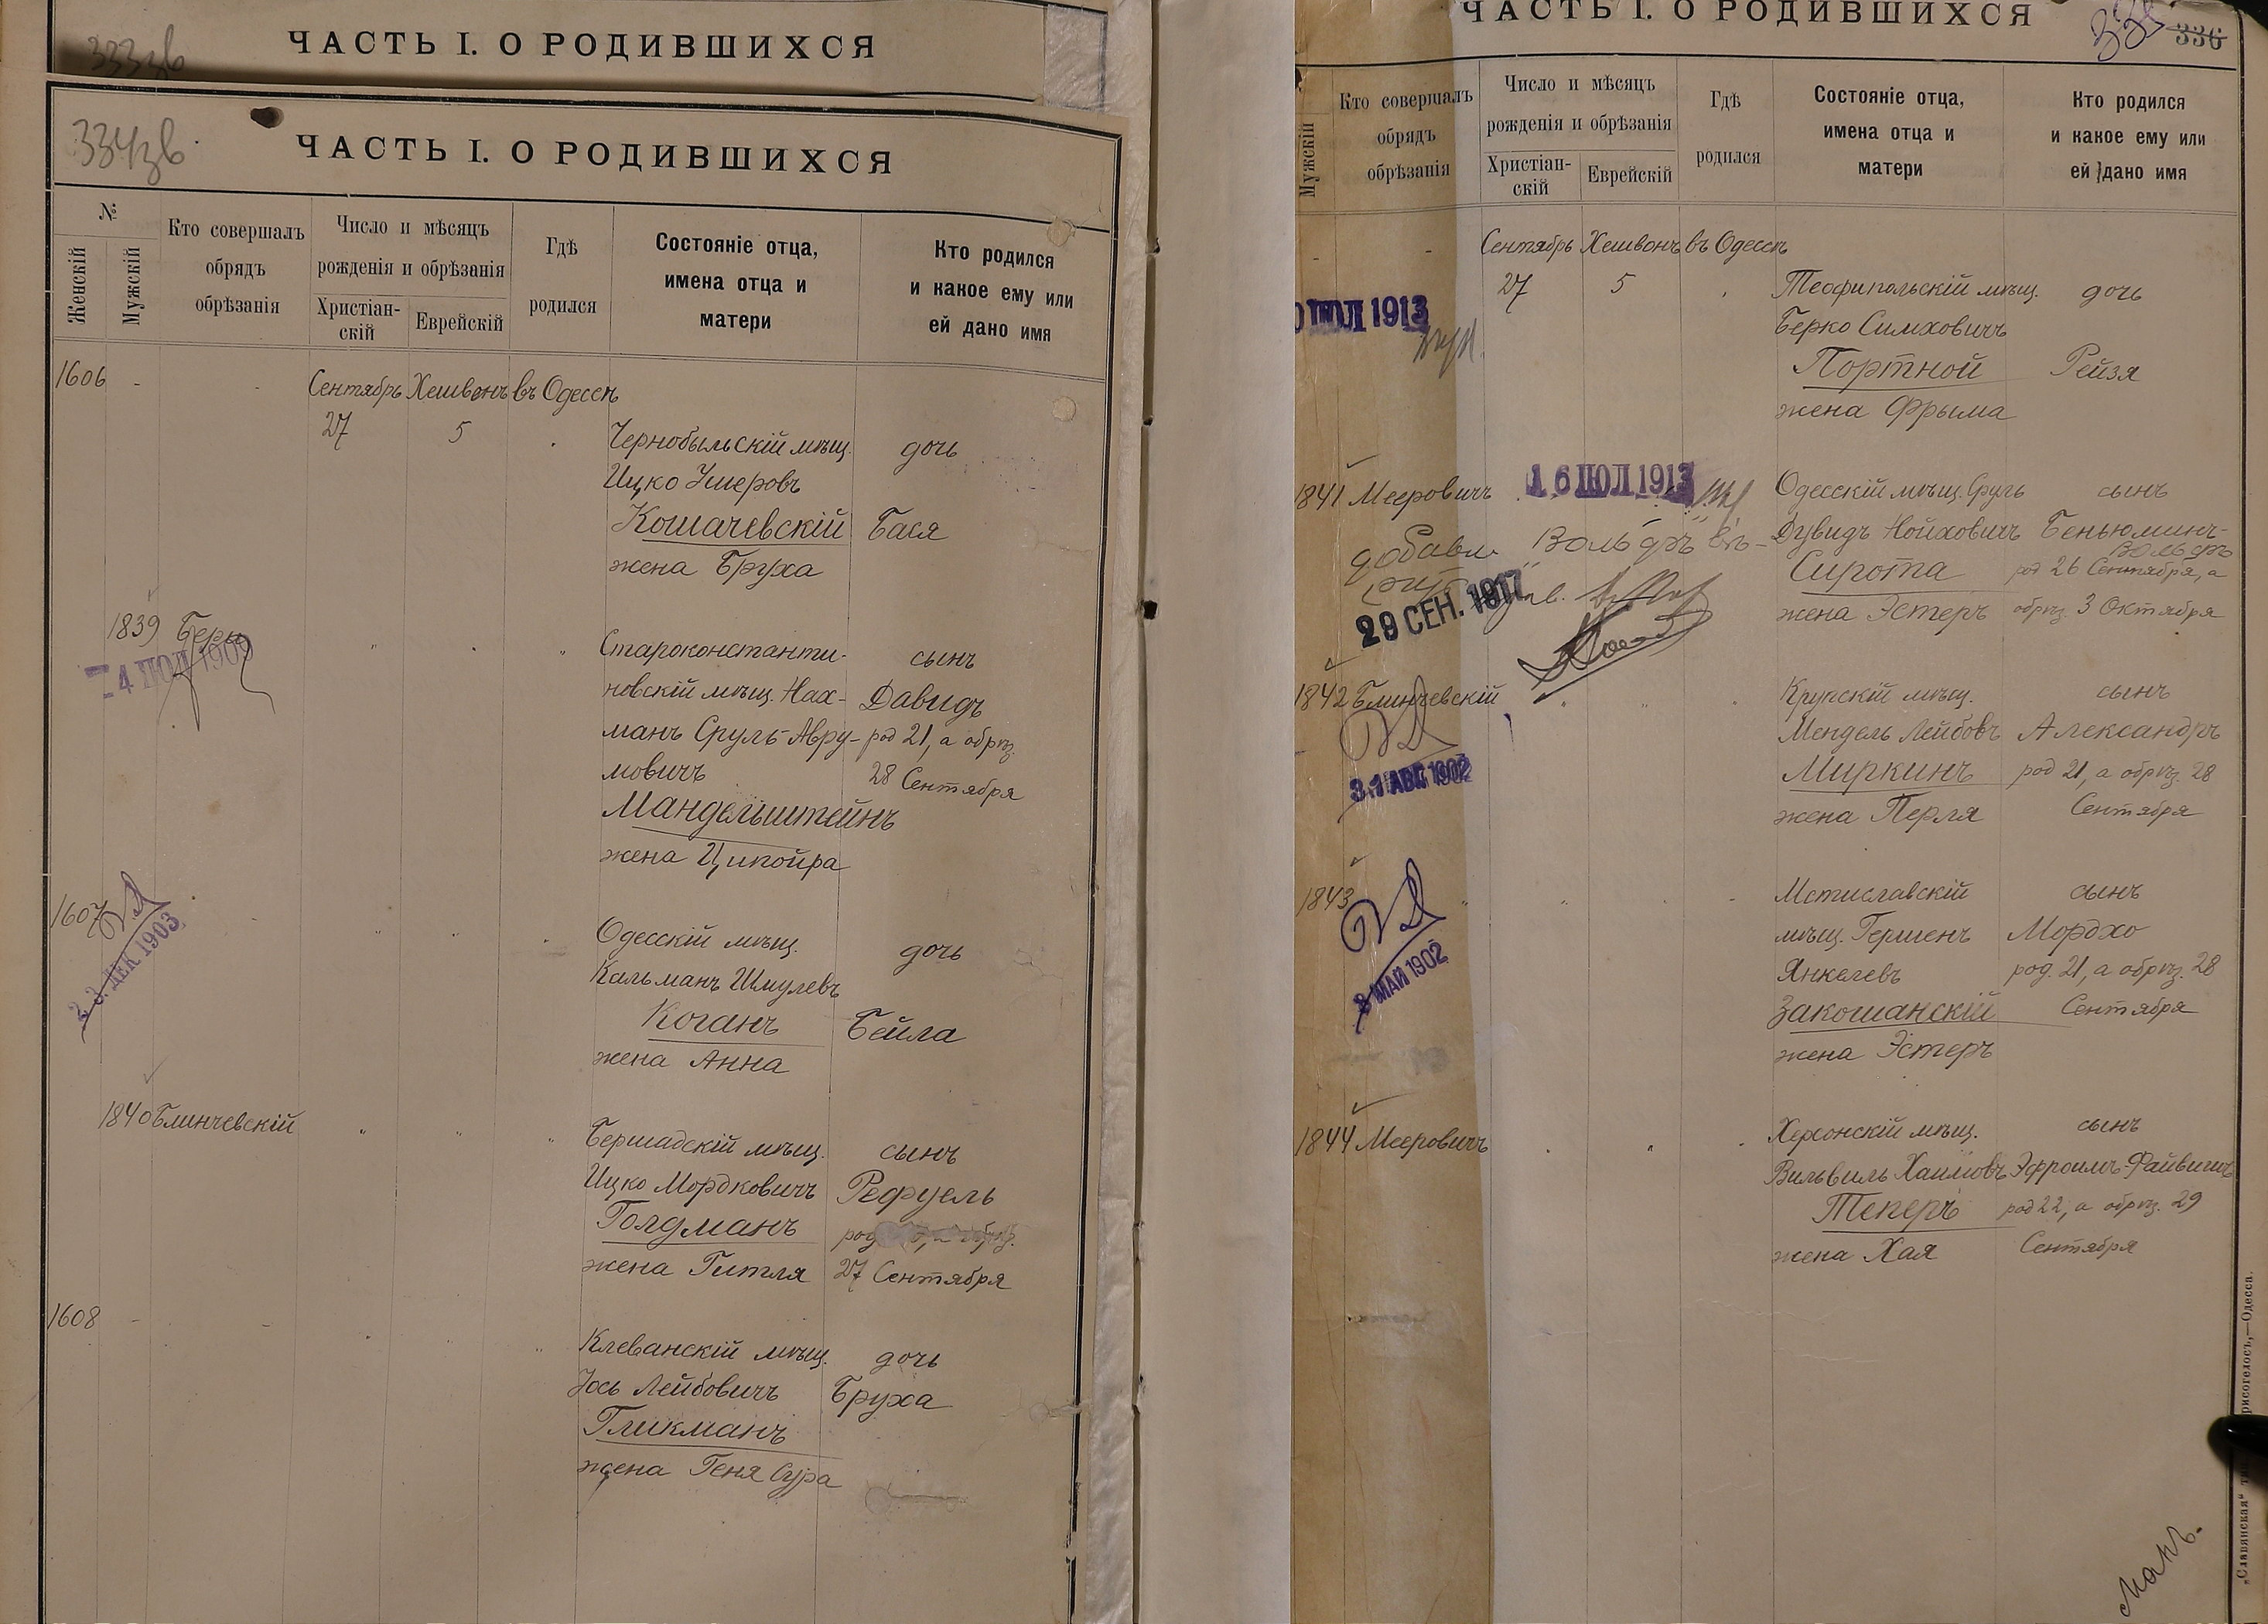 333зв
ЧАСТЬ I. О РОДИВШИХСЯ
334зв.
ЧАСТЬ I. О РОДИВШИХСЯ
№
Женскій
Мужскій
Кто совершалъ
обрядъ
обрѣзанія
Число и мѣсяцъ
рожденія и обрѣзанія
Христіан-
скій
Еврейскій
Гдѣ
родился
Состояніе отца,
имена отца и
матери
Кто родился
и какое ему или
ей дано имя
1606 - - Сентябрь Хешвонъ въ Одессѣ
27 5 Чернобыльскій мѣщ. дочь
Ицко Умеровъ
Кошачевскій Бася
жена Брухa
1839 Беръ
24 ІЮЛ 1909
Староконстанти- сынъ
новскій мѣщ. Нах- Давидъ
манъ Сруль-Авру- род 21, а обрѣз.
мовичъ 28 Сентября
Мандельштейнъ
жена Ципойра
1607
23 ДЕК 1903
Одесскій мѣщ. дочь
Кальманъ Шмулевъ
Коганъ Бейла
жена Анна
1840 Блинчевскій
Бершадскій мѣщ. сынъ
Ицко Мордковичъ Рефуель
Голдманъ род
жена Гитля 27 Сентября
1608 - -
Клеванскій мѣщ. дочь
Іось Лейбовичъ Бруха
Гликманъ
жена Геня Сура
ЧАСТЬ I. О РОДИВШИХСЯ
336
Мужскій
Кто совершалъ
обрядъ
обрѣзанія
Число и мѣсяцъ
рожденія и обрѣзанія
Христіан-
скій
Еврейскій
Гдѣ
родился
Состояніе отца,
имена отца и
матери
Кто родился
и какое ему или
ей дано имя
- - Сентябрь Хешвонъ въ Одессѣ
27 5 Теофипольскій мѣщ. дочь
ІЮЛ 1913
Берко Симховичъ
Портной Рейзя
жена Фрыма
1841 Мееровичъ 16 ІЮЛ 1913 Одесскій мѣщ. Сруль сынъ
Дувидъ Нойховичъ Беньюминъ-
добавл. "Вольфъ" Вольфъ
Сирота род 26 Сентября, а
29 СЕН. 1917
жена Эстеръ обрѣз. 3 Октября
1842 Блинчевскій Крупскій мѣщ. сынъ
Мендель Лейбовъ Александръ
31 АВГ 1902
Миркинъ род 21, а обрѣз. 28
жена Перля Сентября
1843 Мстиславскій сынъ
мѣщ. Гершенъ Мордхо
8 МАЙ 1902
Янкелевъ род. 21, а обрѣз. 28
Закошанскій Сентября
жена Эстеръ
1844 Мееровичъ Херсонскій мѣщ. сынъ
Вильвиль Хаимовъ Эфроимъ-Файвишъ
Текеръ род 22, а обрѣз. 29
жена Хая Сентября
манъ.
„Славянская“ рисогелосъ,—Одесса.